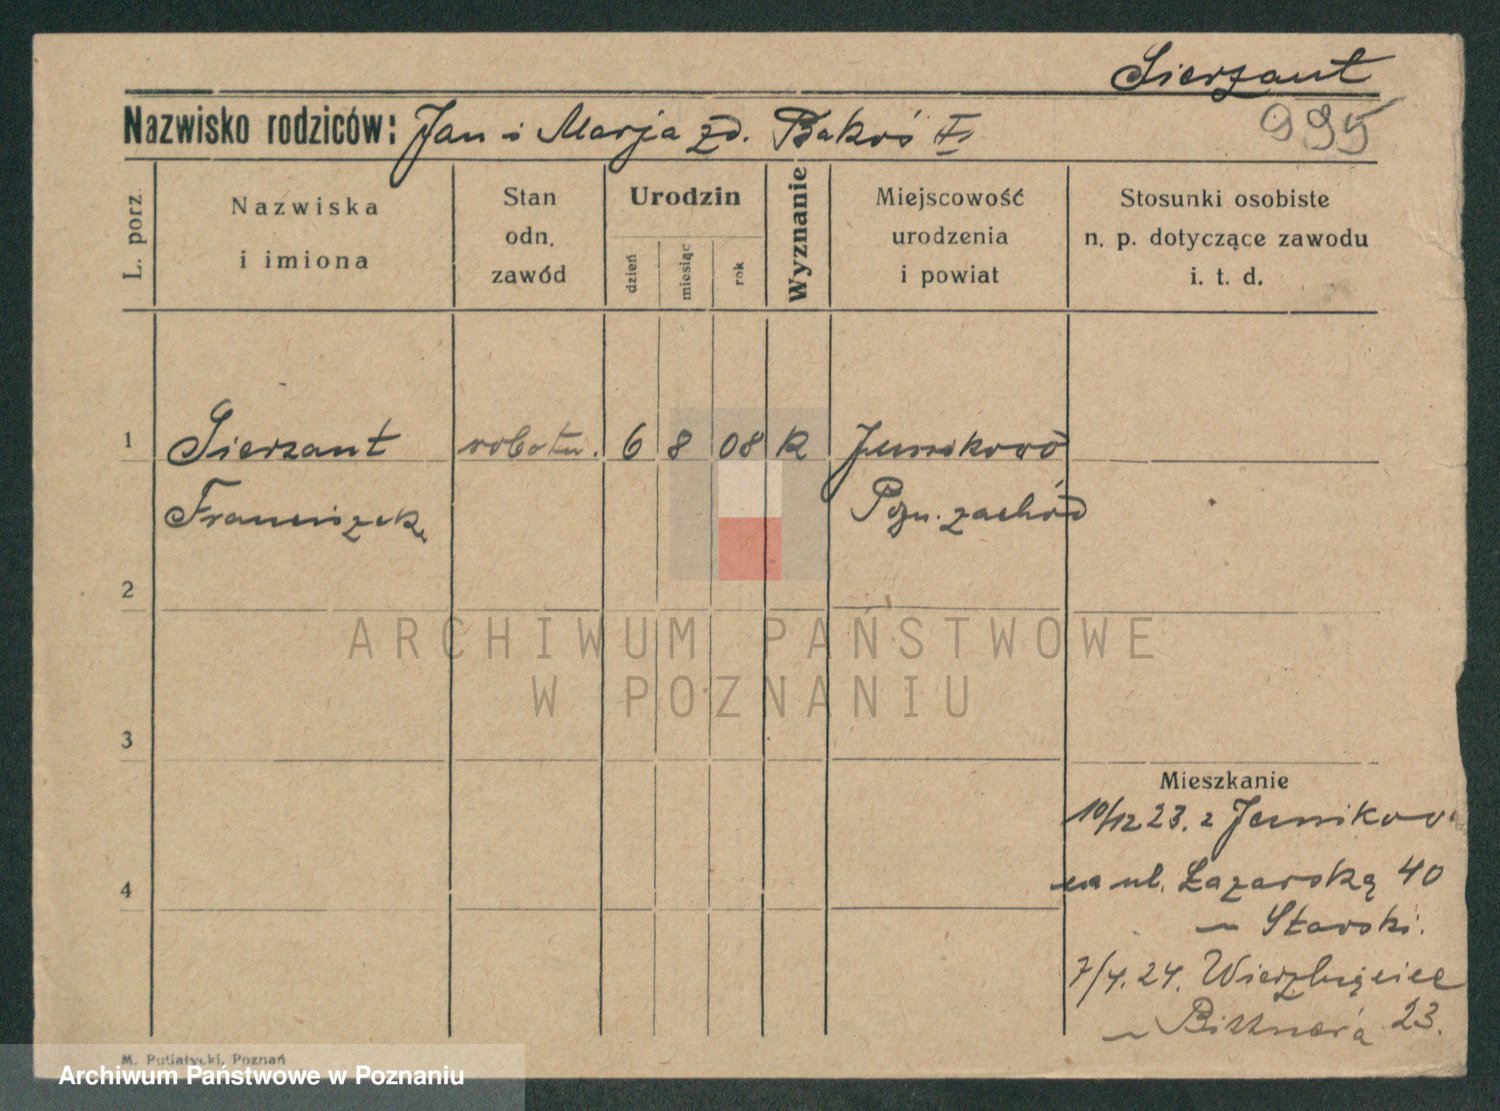 Sierzant
995
Nazwisko rodziców: Jan i Marja zd. Bakoś
L. porz.
Nazwiska
i imiona
Stan
odn.
zawód
Urodzin
dzień
miesiąc
rok
Wyznanie
Miejscowość
urodzenia
i powiat
Stosunki osobiste
n. p. dotyczące zawodu
i. t. d.
1 Sierzant robotn. 6 8 08 K Junikowo
Franciszek Pozn. zachód
2
ARCHIWUM PAŃSTWOWE
W POZNANIU
3
Mieszkanie
10/12 23. z Junikowa
4
na ul. Łazarską 40
~ Starski.
7/4. 24. Wierzbięcice
~ Bittnera 23.
M. Putiatycki, Poznań
Archiwum Państwowe w Poznaniu